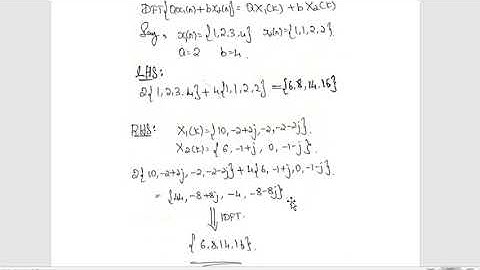 IDFT{ax₁(n)+bx₂(n)} = aX₁(k) + bX₂(k)
Say, x₁(n)={1,2,3,4} x₂(n)={1,1,2,2}.
a=2 b=4.
LHS:
2{1,2,3,4} + 4{1,1,2,2} = {6,8,14,16}
RHS: X₁(k)={10,-2+2j,-2,-2-2j}.
X₂(k)={6,-1+j, 0,-1-j}
2{10,-2+2j,-2,-2-2j}+4{6,-1+j,0,-1-j}
= {44, -8+8j, -4, -8-8j}
⇓ IDFT.
{6,8,14,16}.